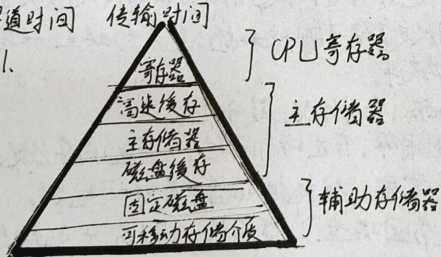 道时间 传输时间
1.
寄存器
高速缓存
主存储器
磁盘缓存
固定磁盘
可移动存储介质
CPU寄存器
主存储器
辅助存储器